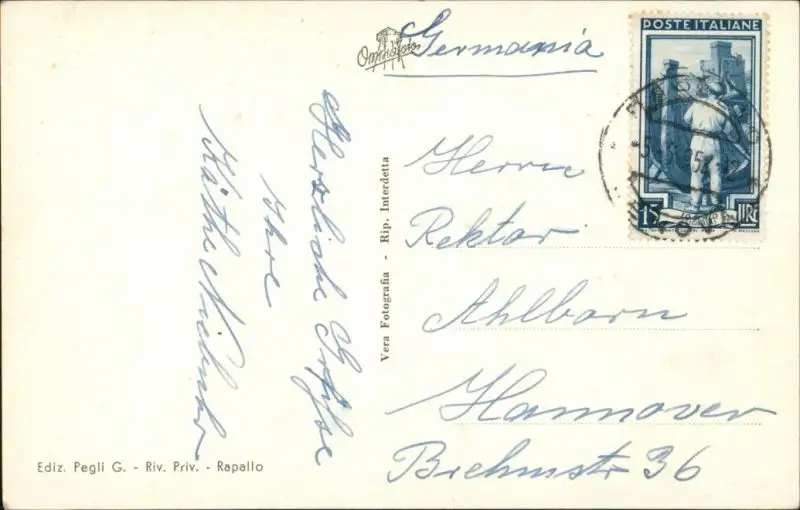 Omniafoto
Germania
POSTE ITALIANE
15 LIRE
Herrn
Rektor
Ahlborn
Hannover
Brehmstr 36
Herzliche Grüße
Ihre
Käthe
Vera Fotografia - Rip. Interdetta
Ediz. Pegli G. - Riv. Priv. - Rapallo